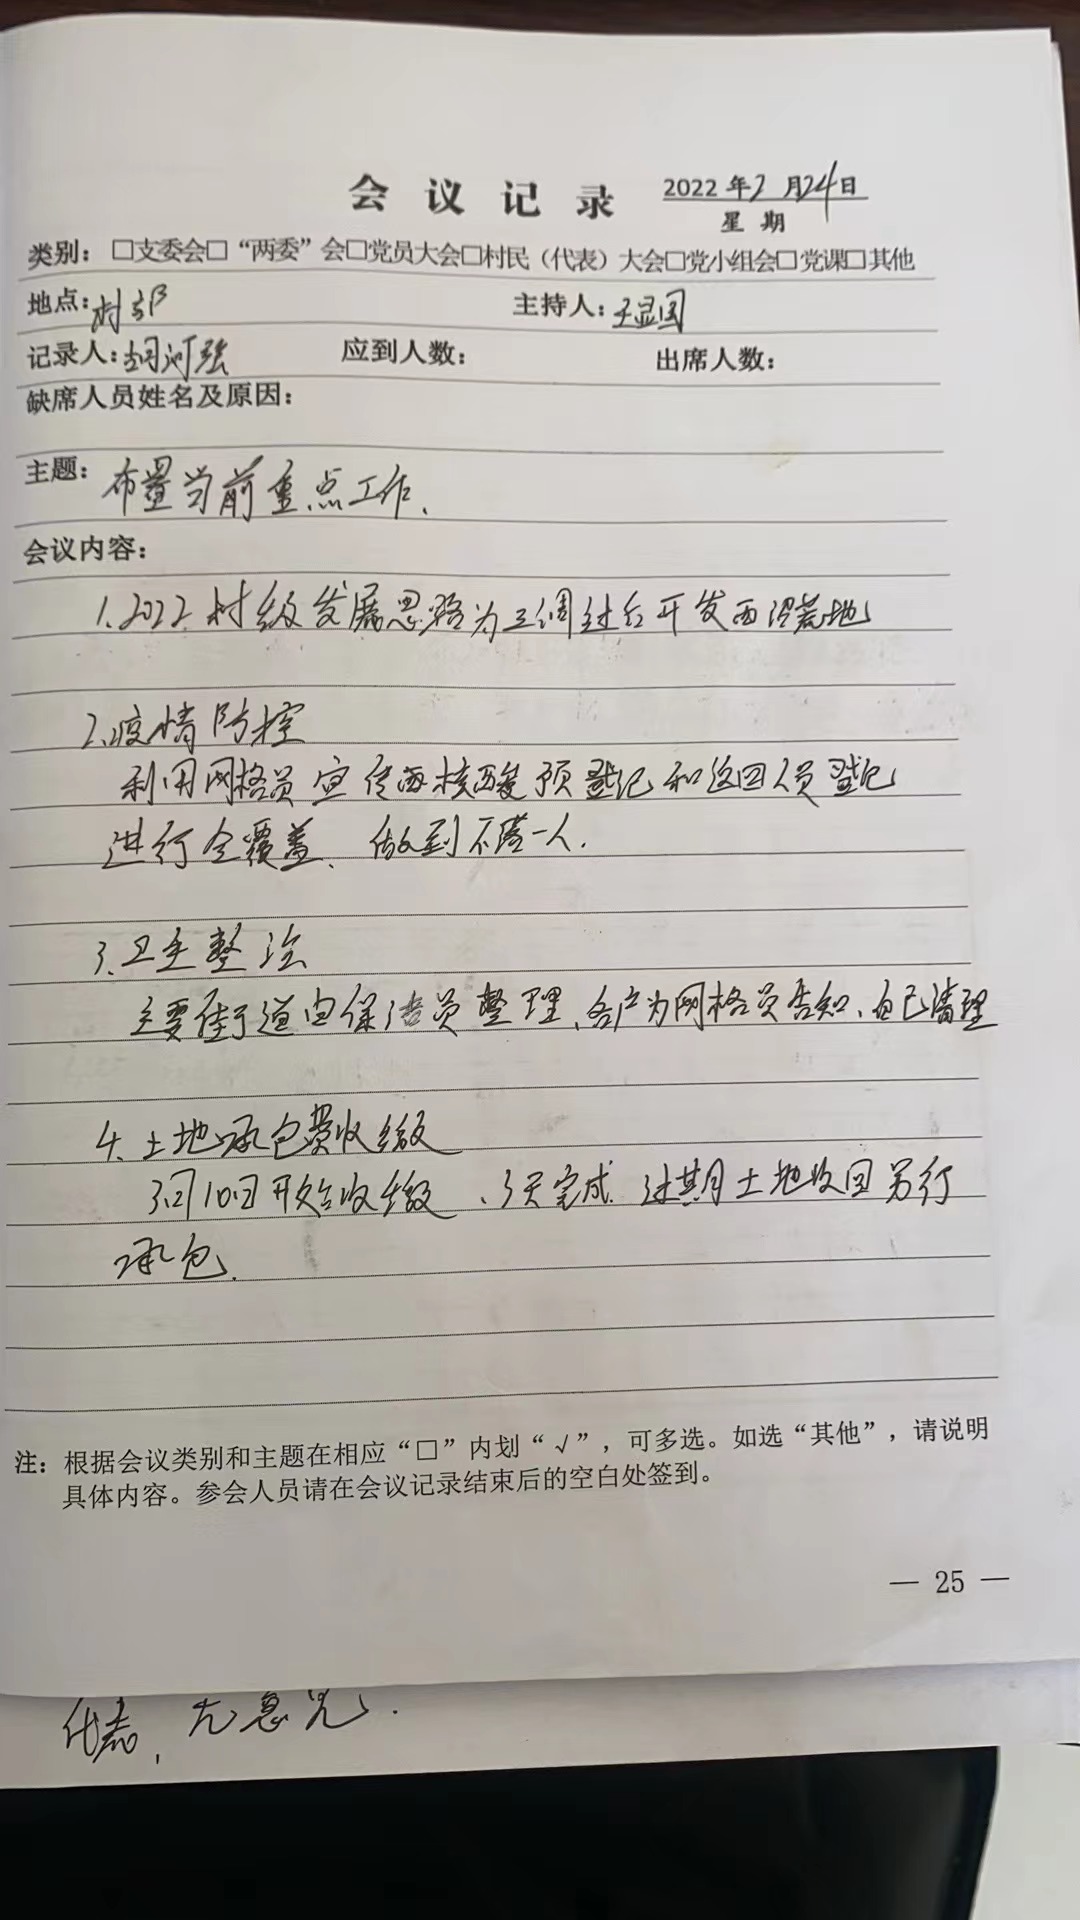 会议记录
2022年2月24日
星期
类别：□支委会□“两委”会□党员大会□村民（代表）大会□党小组会□党课□其他
地点：村部 主持人：王显国
记录人：胡河强 应到人数： 出席人数：
缺席人员姓名及原因：
主题：布置当前重点工作.
会议内容：
1.2022村级发展思路为三调过后开发西沼荒地
2.疫情防控
利用网格员宣传 核酸预登记和返回人员登记
进行全覆盖、做到不落一人.
3.卫生整治
主要街道由保洁员整理、各户为网格员告知、自己清理
4.土地承包费收缴
3月10日开始收缴、3天完成.过其月土地收回另行
承包.
注：根据会议类别和主题在相应“□”内划“√”，可多选。如选“其他”，请说明
具体内容。参会人员请在会议记录结束后的空白处签到。
— 25 —
代表，无意见.